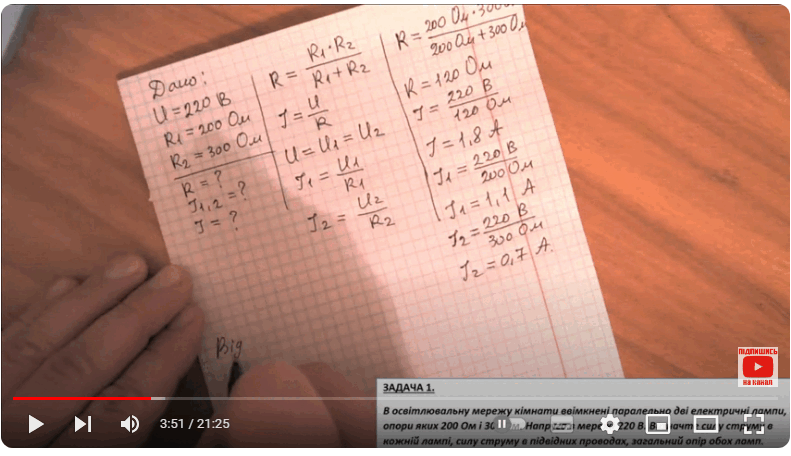 Дано:
U = 220 В
R1 = 200 Ом
R2 = 300 Ом
R = ?
J1,2 = ?
J = ?
R = R1 · R2 / R1 + R2
J = U / R
U = U1 = U2
J1 = U1 / R1
J2 = U2 / R2
R = 200 Ом · 300 / 200 Ом + 300 Ом
R = 120 Ом
J = 220 В / 120 Ом
J = 1,8 А
J1 = 220 В / 200 Ом
J1 = 1,1 А
J2 = 220 В / 300 Ом
J2 = 0,7 А.
Від
ПІДПИШИСЬ
НА КАНАЛ
ЗАДАЧА 1.
В освітлювальну мережу кімнати ввімкнені паралельно дві електричні лампи,
опори яких 200 Ом і 30 220 В.
кожній лампі, силу струму в підвідних проводах, загальний опір обох ламп.
3:51 / 21:25